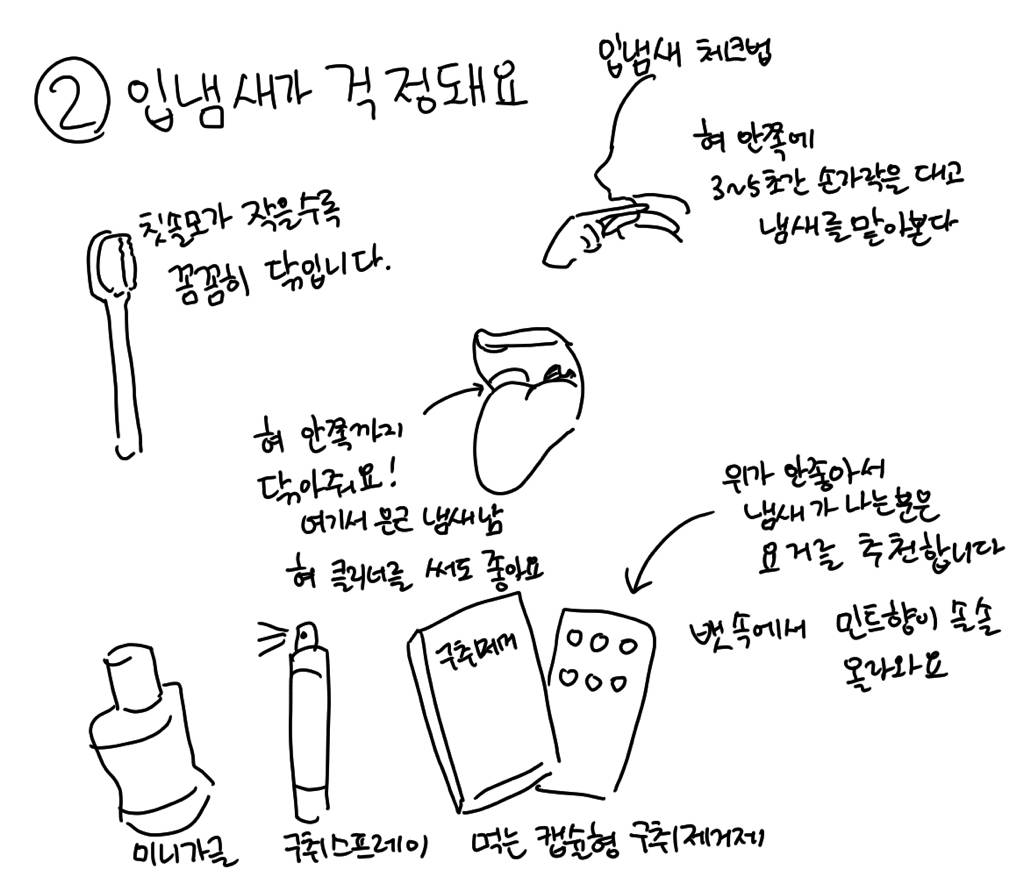 ② 입냄새가 걱정돼요
입냄새 체크법
혀 안쪽에
3~5초간 손가락을 대고
냄새를 맡아본다
칫솔모가 작을수록
꼼꼼히 닦입니다.
혀 안쪽까지
닦아줘요!
여기서 은근 냄새남
혀 클리너를 써도 좋아요
위가 안좋아서
냄새가 나는분은
요거를 추천합니다
뱃속에서 민트향이 솔솔
올라와요
구취제거
미니가글
구취스프레이
먹는 캡슐형 구취제거제